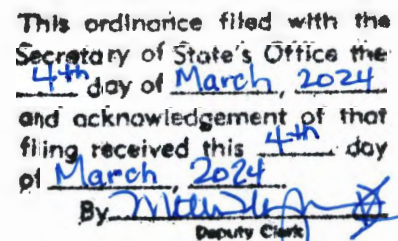 This ordinance filed with the
Secretary of State's Office the
4th day of March, 2024
and acknowledgement of that
filing received this 4th day
of March, 2024.
By
Deputy Clerk